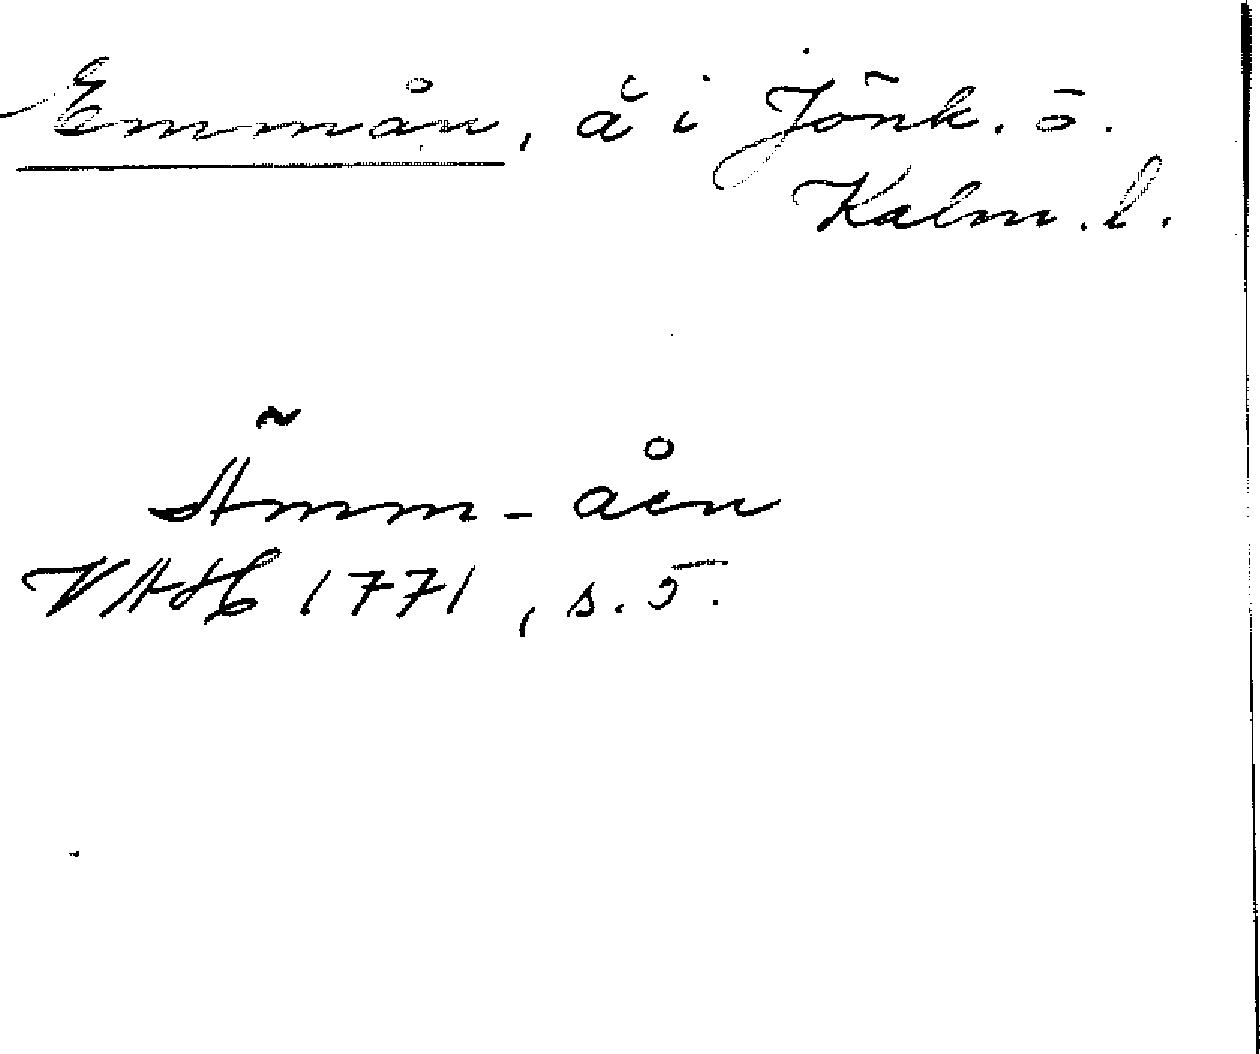 Emmån, å i Jönk. o.
Kalm. l.
Ämm-åen
VAH 1771, s. 5.